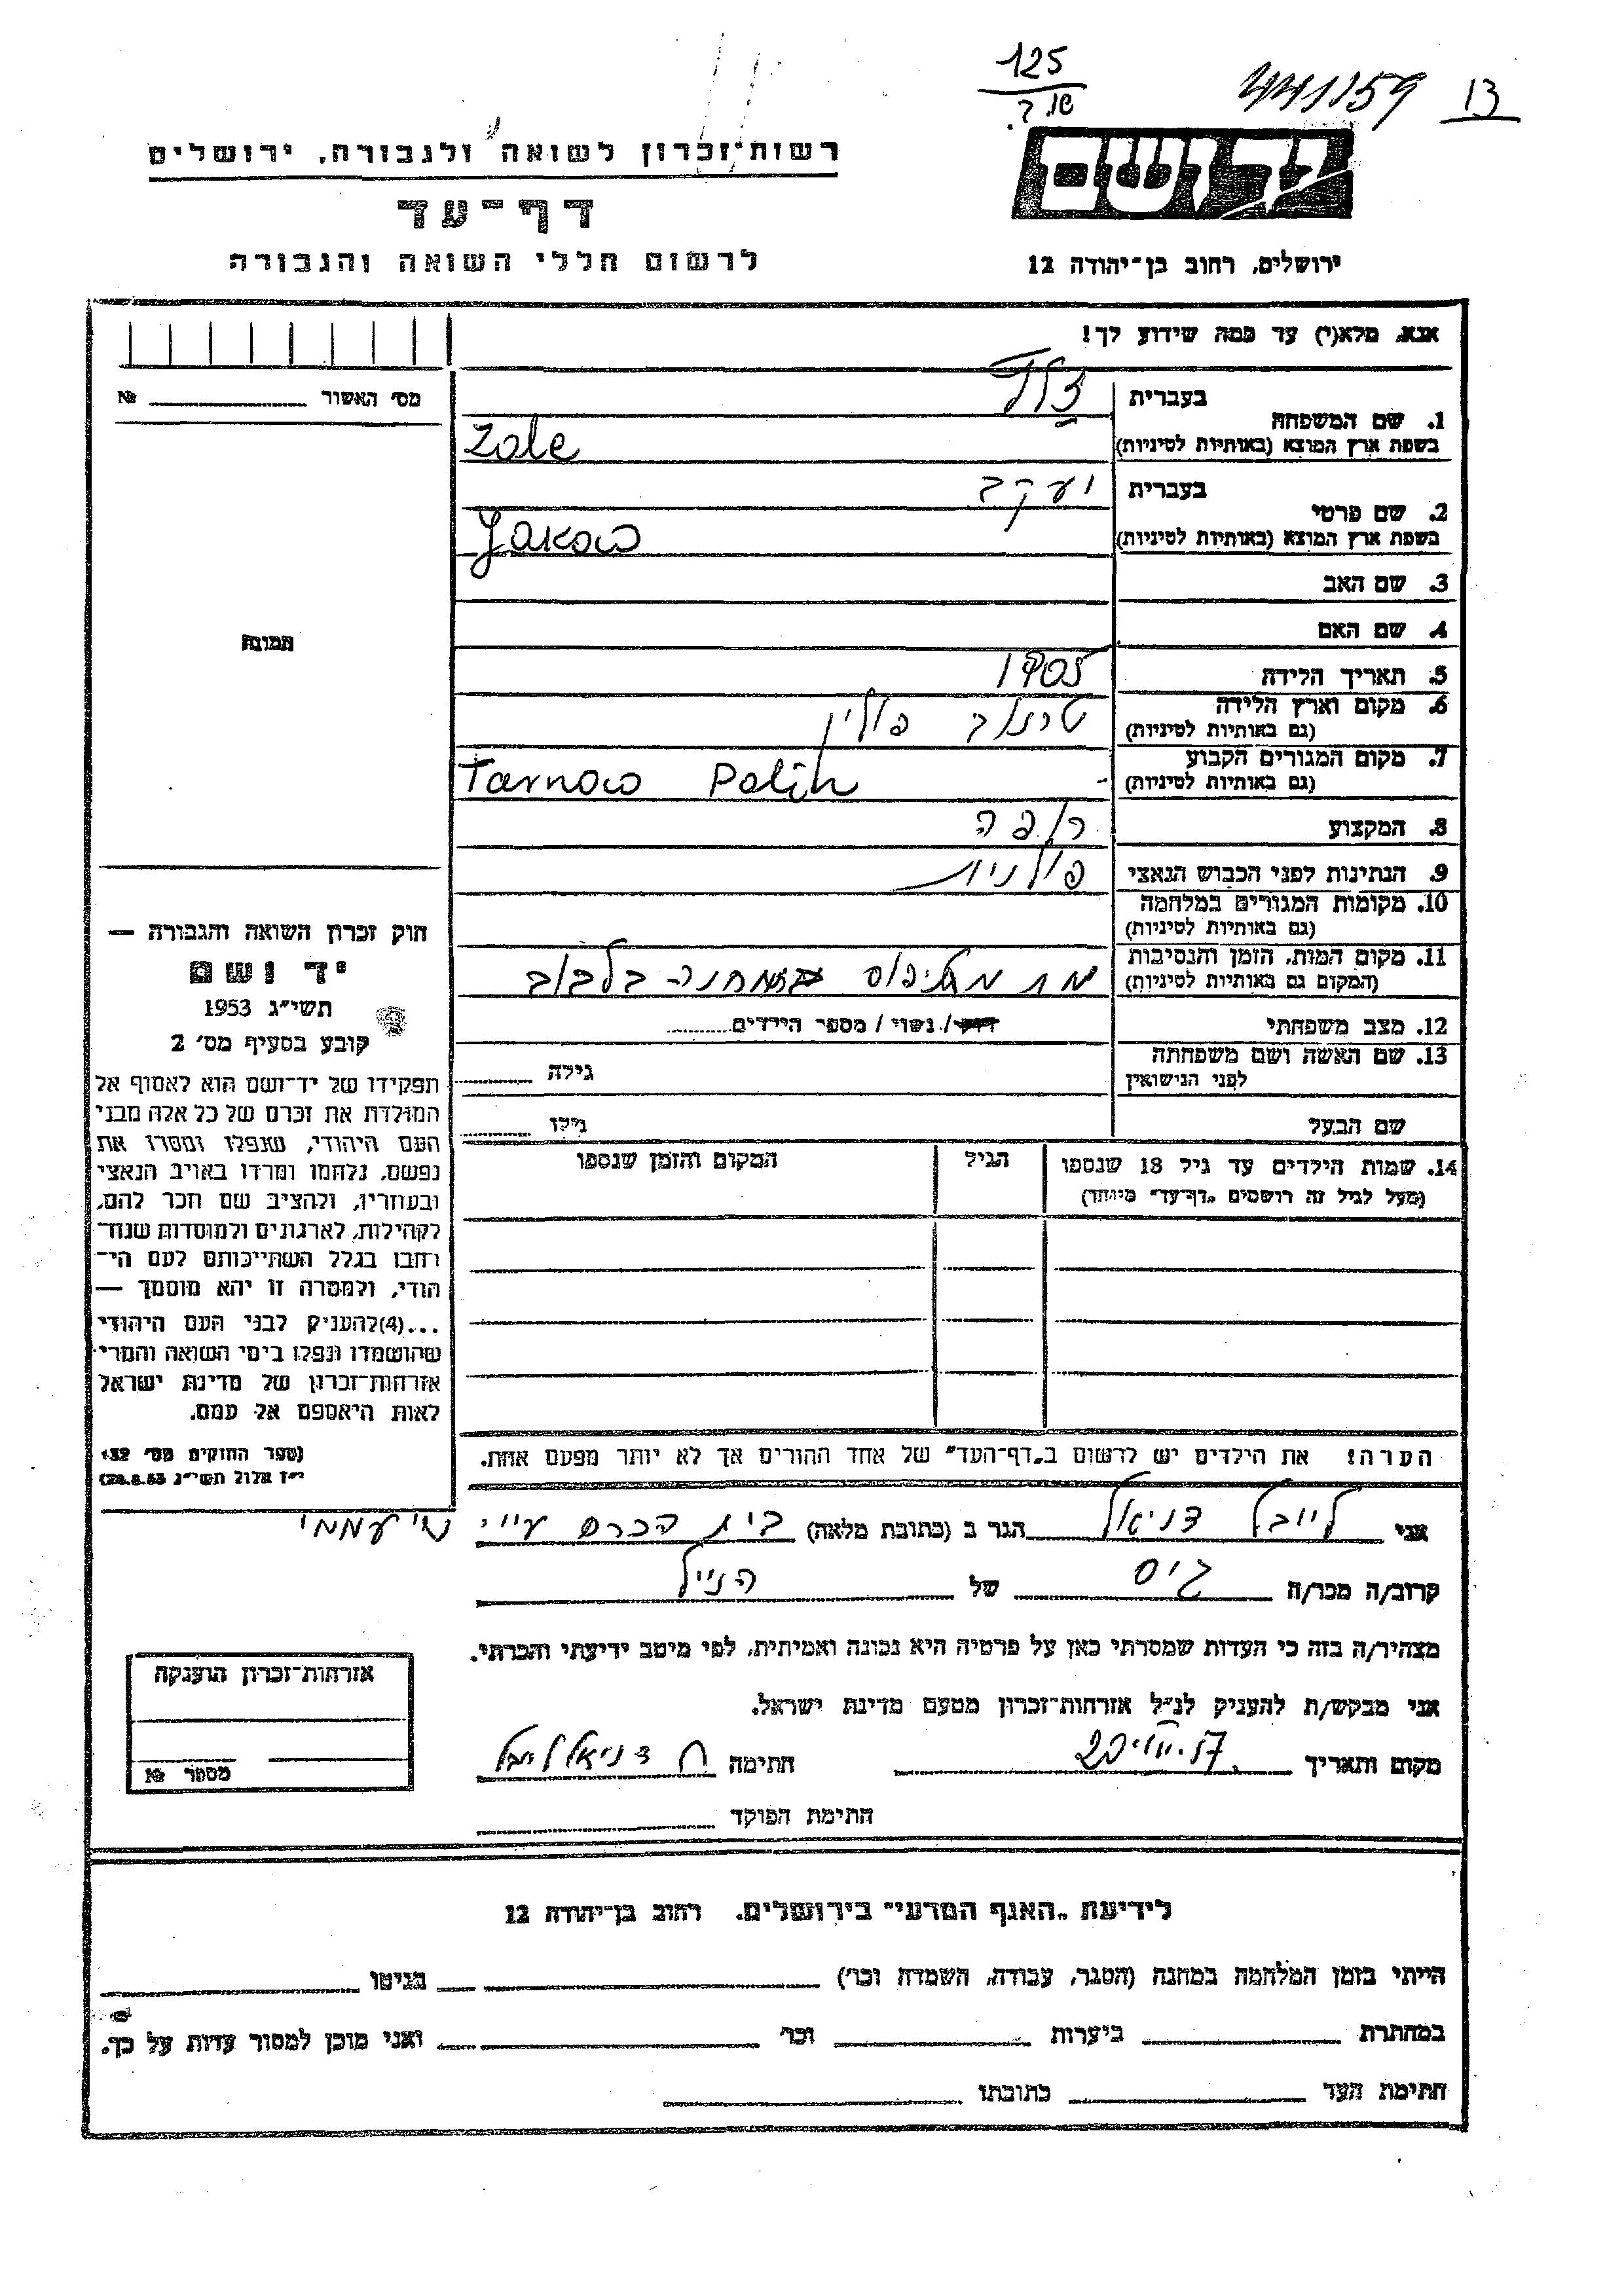 125
ש.ד.
441159
13
רשות-זכרון לשואה ולגבורה, ירושלים
דף-עד
לרשום חללי השואה והגבורה
יד ושם
ירושלים, רחוב בן-יהודה 12
אנא, מלא(י) עד כמה שידוע לך!
מס' האשור №
1. שם המשפחה בעברית
בשפת ארץ המוצא (באותיות לטיניות) Zole
2. שם פרטי בעברית יעקב
בשפת ארץ המוצא (באותיות לטיניות) Jakow
3. שם האב
4. שם האם
תמונה
5. תאריך הלידה 1905
6. מקום וארץ הלידה טרנוב פולין
(גם באותיות לטיניות)
7. מקום המגורים הקבוע Tarnow Polin
(גם באותיות לטיניות)
8. המקצוע רופה
9. הנתינות לפני הכבוש הנאצי פולנית
10. מקומות המגורים במלחמה
(גם באותיות לטיניות)
11. מקום המות, הזמן והנסיבות מת מטיפוס במחנה בלבוב
(המקום גם באותיות לטיניות)
12. מצב משפחתי רווק / נשוי / מספר הילדים
13. שם האשה ושם משפחתה גילה
לפני הנישואין
שם הבעל גילו
14. שמות הילדים עד גיל 18 שנספו הגיל המקום והזמן שנספו
(מעל לגיל זה רושמים "דף-עד" מיוחד)
חוק זכרון השואה והגבורה —
יד ושם
תשי"ג 1953
קובע בסעיף מס' 2
תפקידו של יד-ושם הוא לאסוף אל
המולדת את זכרם של כל אלה מבני
העם היהודי, שנפלו ומסרו את
נפשם, נלחמו ומרדו באויב הנאצי
ובעוזריו, ולהציב שם וזכר להם,
לקהילות, לארגונים ולמוסדות שנח-
רבו בגלל השתייכותם לעם הי-
הודי, ולמטרה זו יהא מוסמך —
...(4) להעניק לבני העם היהודי
שהושמדו ונפלו בימי השואה והמרי
אזרחות-זכרון של מדינת ישראל
לאות היאספם אל עמם.
(ספר החוקים מס' 132,
י"ז אלול תשי"ג 28.8.53)
הערה! את הילדים יש לרשום ב"דף-העד" של אחד ההורים אך לא יותר מפעם אחת.
אני לייבל דניאל הגר ב (כתובת מלאה) בית הכרם
קרוב/ה מכר/ה גיס של הנ"ל
מצהיר/ה בזה כי העדות שמסרתי כאן על פרטיה היא נכונה ואמיתית, לפי מיטב ידיעתי והכרתי.
אני מבקש/ת להעניק לנ"ל אזרחות-זכרון מטעם מדינת ישראל.
מקום ותאריך חתימה דניאל לייבל
חתימת הפוקד
אזרחות-זכרון הוענקה
מספר №
לידיעת "האגף המדעי" בירושלים, רחוב בן-יהודה 12
הייתי בזמן המלחמה במחנה (הסגר, עבודה, השמדה וכו') בגיטו
במחתרת ביערות וכו' ואני מוכן למסור עדות על כך.
חתימת העד כתובתו